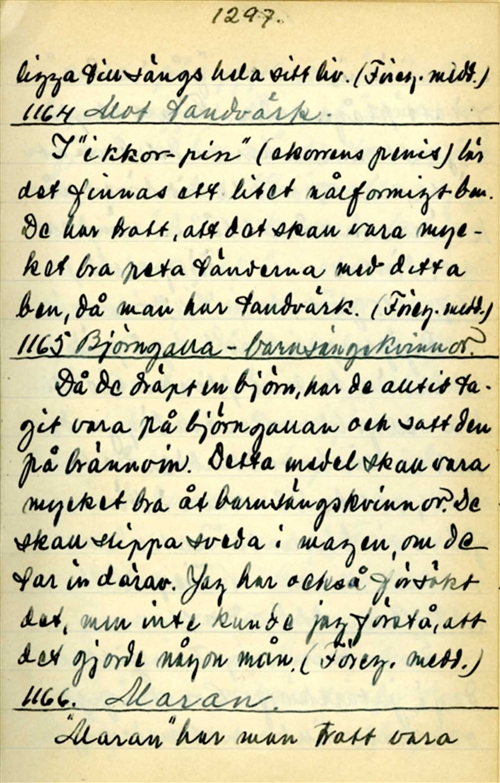 1297.
ligga till sängs hela sitt liv. (Föreg. medd.)
1164 Mot tandvärk.
I "ikkor-pisi" (ekorrens penis) lär
det finnas ett litet nålformigt ben.
De har trott, att det skall vara myc-
ket bra peta tänderna med detta
ben, då man har tandvärk. (Föreg. medd.)
1165 Björngalla - barnsängskvinnor.
Då de dräpt en björn, har de alltid ta-
git vara på björngallan och satt den
på brännvin. Detta medel skall vara
mycket bra åt barnsängskvinnor. De
skall slippa sveda i magen, om de
tar in därav. Jag har också försökt
det, men inte kunde jag förstå, att
det gjorde någon mån. (Föreg. medd.)
1166. Maran.
"Maran" har man trott vara